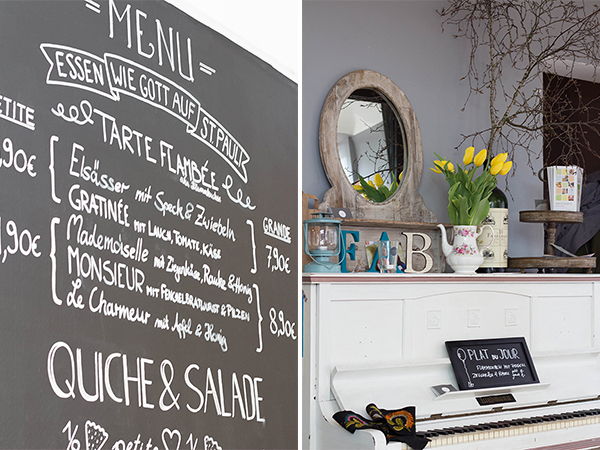 MENU
ESSEN WIE GOTT AUF ST. PAULI
TARTE FLAMBÉE
ETITE
Elsässer mit Speck & Zwiebeln
GRATINÉE MIT LAUCH, TOMATE, KÄSE
GRANDE
,90€
7,90€
Mademoiselle mit Ziegenkäse, Rauke & Honig
MONSIEUR MIT FENCHELBRATWURST & PILZEN
Le Charmeur mit Apfel & Honig
,90€
8,90€
QUICHE & SALADE
petite
FAB
PLAT DU JOUR